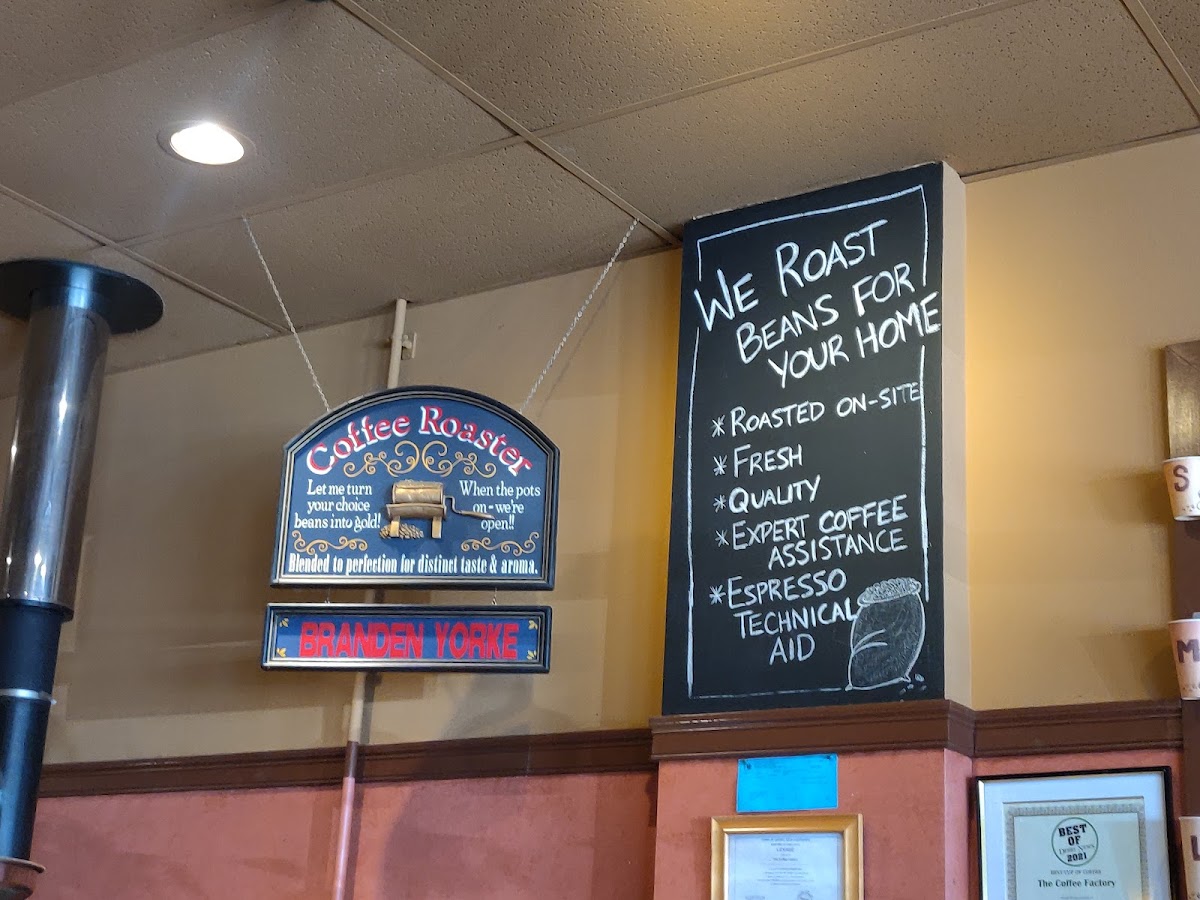 Coffee Roaster
Let me turn
your choice
beans into gold!
When the pots
on - we're
open!!
Blended to perfection for distinct taste & aroma.
BRANDEN YORKE
WE ROAST
BEANS FOR
YOUR HOME
* ROASTED ON-SITE
* FRESH
* QUALITY
* EXPERT COFFEE
ASSISTANCE
* ESPRESSO
TECHNICAL
AID
S
M
L
LICENSE
BEST
OF
2021
BEST CUP OF COFFEE
The Coffee Factory